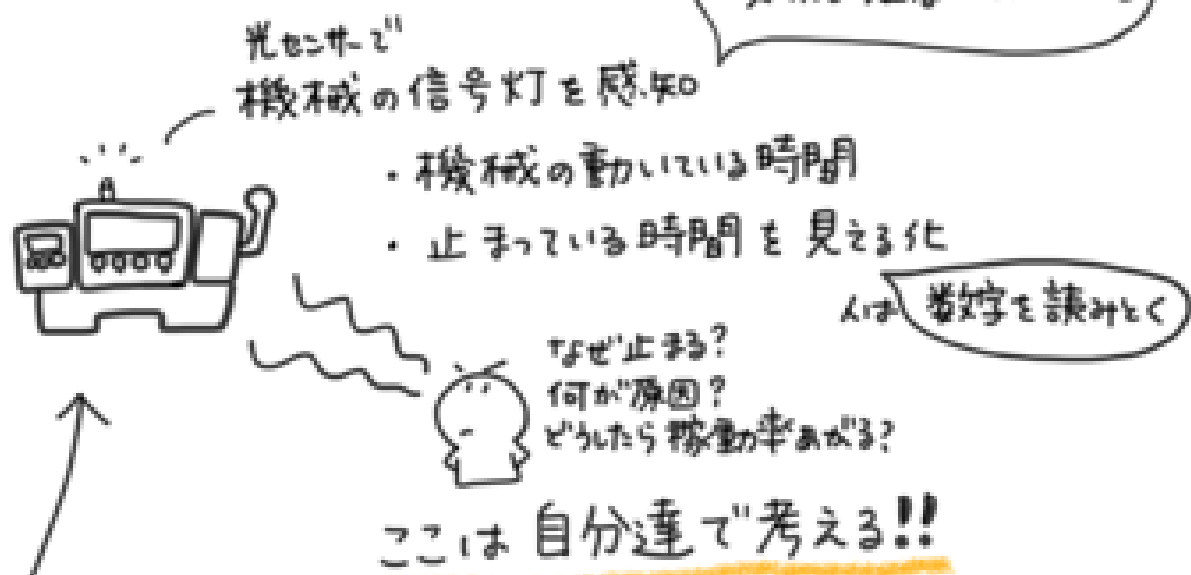 光センサーで
機械の信号灯を感知
・機械の動いている時間
・止まっている時間を見える化
人は 数字を読みとく
なぜ止まる?
何が原因?
どうしたら稼動率あがる?
ここは自分達で考える!!